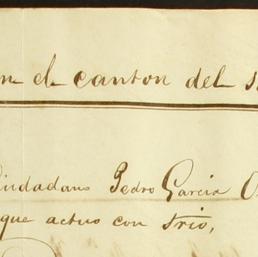 en el canton del
Ciudadano Pedro Garcia
que actuo con Trio,